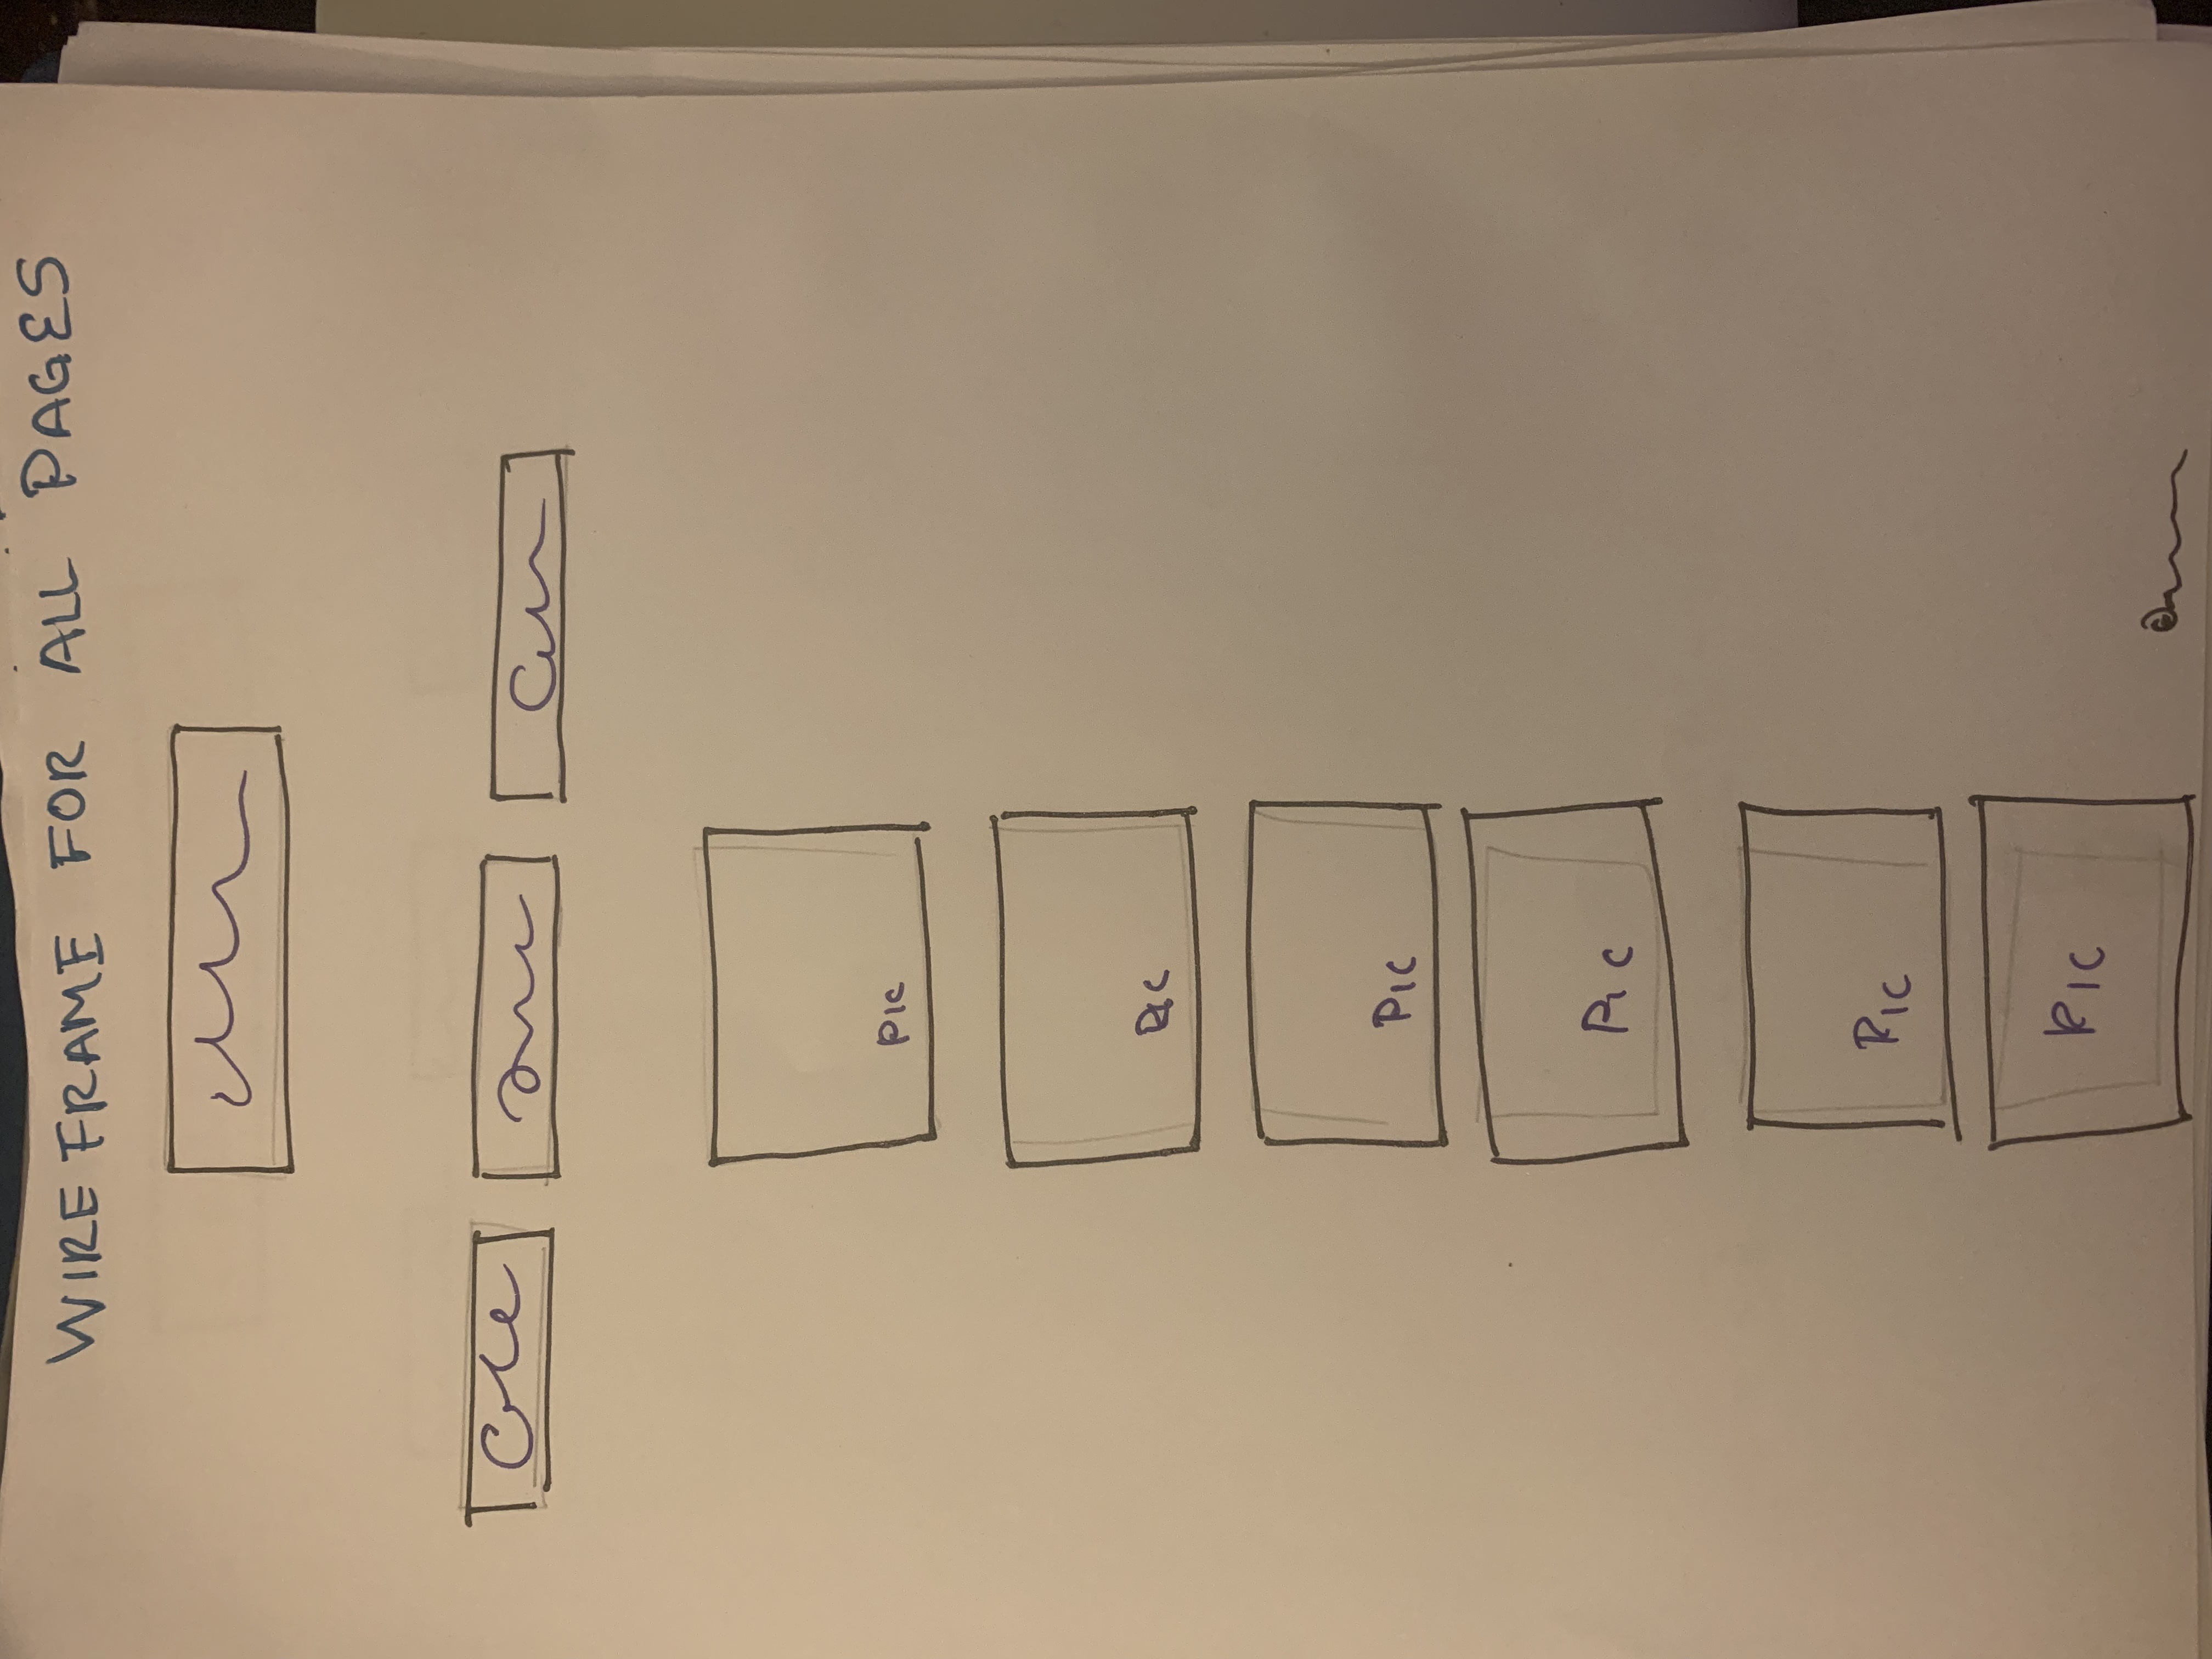 WIREFRAME FOR ALL PAGES
PIC
PIC
PIC
PIC
PIC
PIC